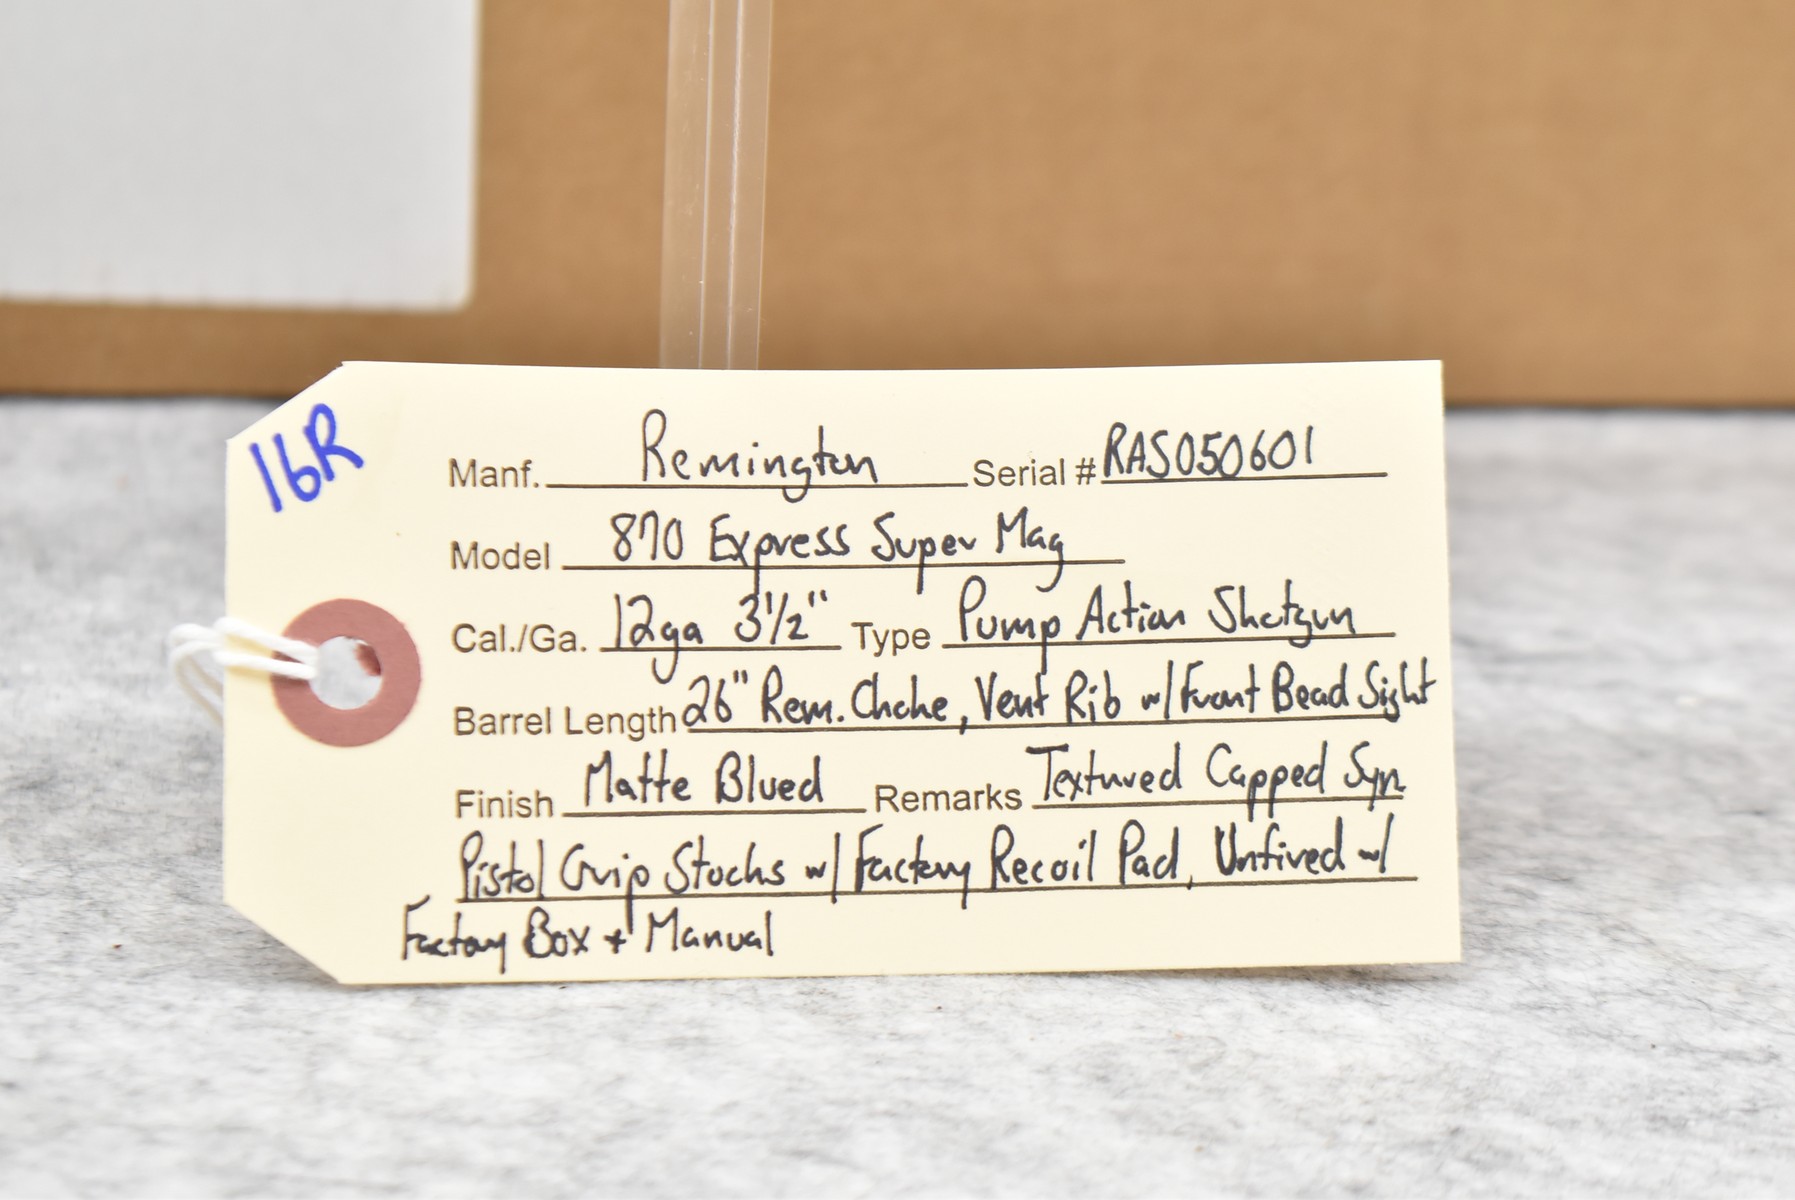 16R
Manf. Remington Serial # RAS050601
Model 870 Express Super Mag
Cal./Ga. 12ga 3½" Type Pump Action Shotgun
Barrel Length 26" Rem. Choke, Vent Rib w/ Front Bead Sight
Finish Matte Blued Remarks Textured Capped Syn
Pistol Grip Stocks w/ Factory Recoil Pad, Unfired w/
Factory Box + Manual